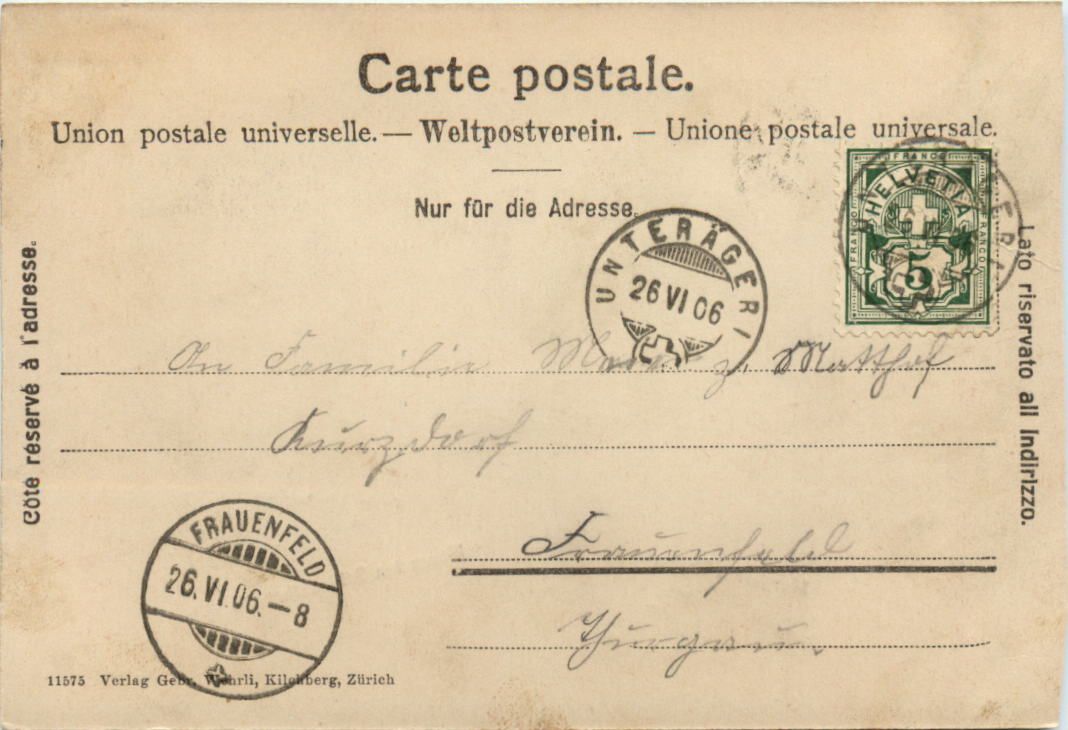 Carte postale.
Union postale universelle. — Weltpostverein. — Unione postale universale.
Nur für die Adresse.
Côté réservé à l'adresse.
Lato riservato all indirizzo.
FRANCO
HELVETIA
FRANCO
FRANCO
5
UNTERÄGERI
26 VI 06
An Familie z. Matthof
Kurzdorf
Frauenfeld
Thurgau.
FRAUENFELD
26.VI.06.–8
11575 Verlag Gebr. Wehrli, Kilchberg, Zürich